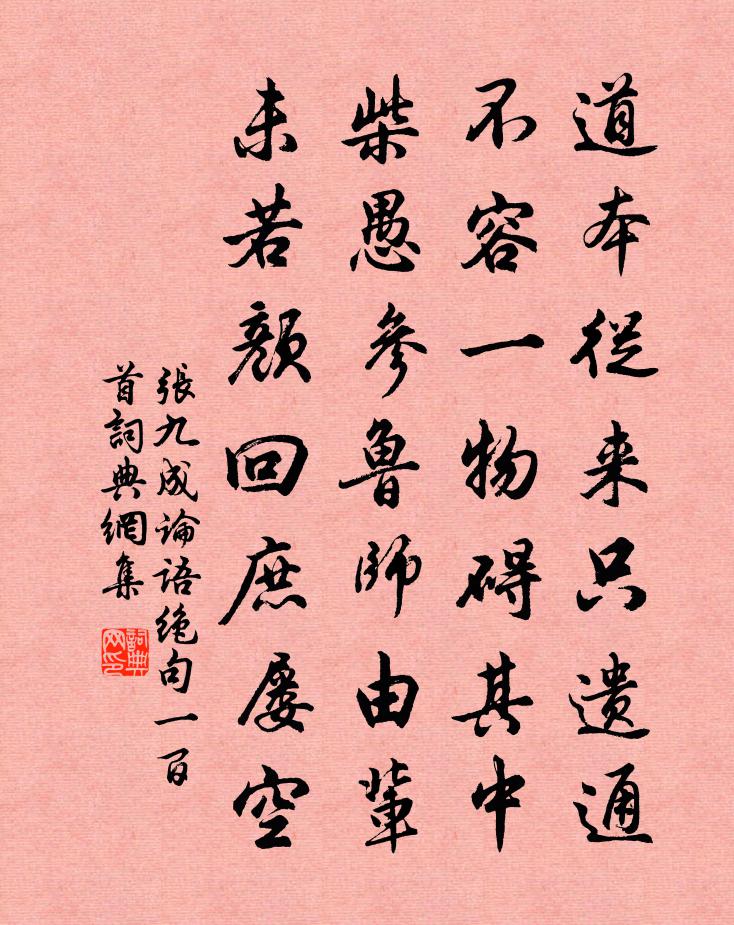 道本從来只遗通
不容一物碍其中
柴愚参鲁師由輩
未若顏回庶屡空
張九成論语绝句一百
首詞典網集
詞典网印